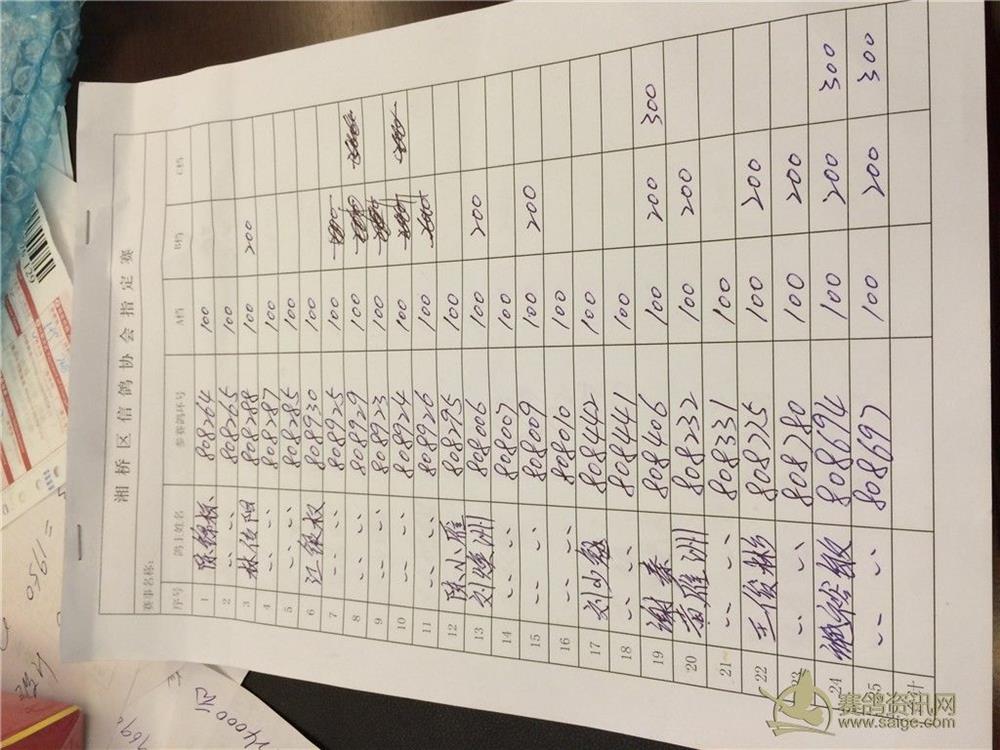 湘桥区信鸽协会指定赛
赛事名称:
序号 鸽主姓名 参赛鸽环号 A档 B档 C档
1 808264 100
2 〃 808265 100
3 808288 100 200
4 〃 808287 100
5 〃 808285 100
6 江 权 808930 100
7 〃 808925 100
8 〃 808929 100
9 〃 808923 100
10 〃 808924 100
11 〃 808926 100
12 陈小雁 808295 100
13 刘焕洲 808006 100 200
14 〃 808007 100
15 〃 808009 100 200
16 〃 808010 100
17 刘少 808442 100
18 〃 808441 100
19 谢 808406 100 200 300
20 黄雁洲 808232 100 200
21 〃 808331 100
22 王俊彬 808775 100 200
23 〃 808780 100 200
24 808694 100 200 300
25 〃 808697 100 200 300
计
=1950
24000元
赛鸽资讯网
www.saige.com